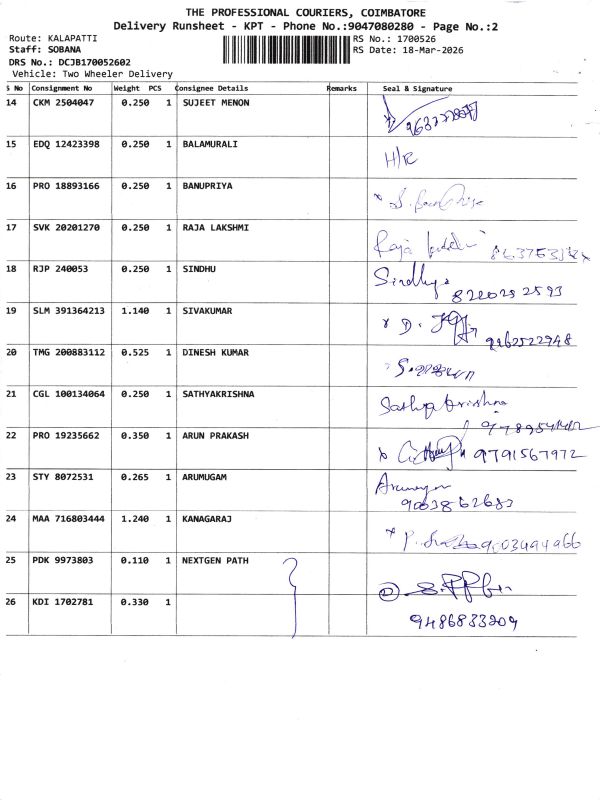 THE PROFESSIONAL COURIERS, COIMBATORE
Delivery Runsheet - KPT - Phone No.:9047080280 - Page No.:2
Route: KALAPATTI RS No.: 1700526
Staff: SOBANA RS Date: 18-Mar-2026
DRS No.: DCJB170052602
Vehicle: Two Wheeler Delivery
S No Consignment No Weight PCS Consignee Details Remarks Seal & Signature
14 CKM 2504047 0.250 1 SUJEET MENON
15 EDQ 12423398 0.250 1 BALAMURALI H/R
16 PRO 18893166 0.250 1 BANUPRIYA
17 SVK 20201270 0.250 1 RAJA LAKSHMI Raja
18 RJP 240053 0.250 1 SINDHU Sindhu
8220252593
19 SLM 391364213 1.140 1 SIVAKUMAR D.
9962522948
20 TMG 200883112 0.525 1 DINESH KUMAR
21 CGL 100134064 0.250 1 SATHYAKRISHNA Sathya krishna
22 PRO 19235662 0.350 1 ARUN PRAKASH 9791567972
23 STY 8072531 0.265 1 ARUMUGAM Arumugam
9003862683
24 MAA 716803444 1.240 1 KANAGARAJ 9003494966
25 PDK 9973803 0.110 1 NEXTGEN PATH
26 KDI 1702781 0.330 1 9486833209